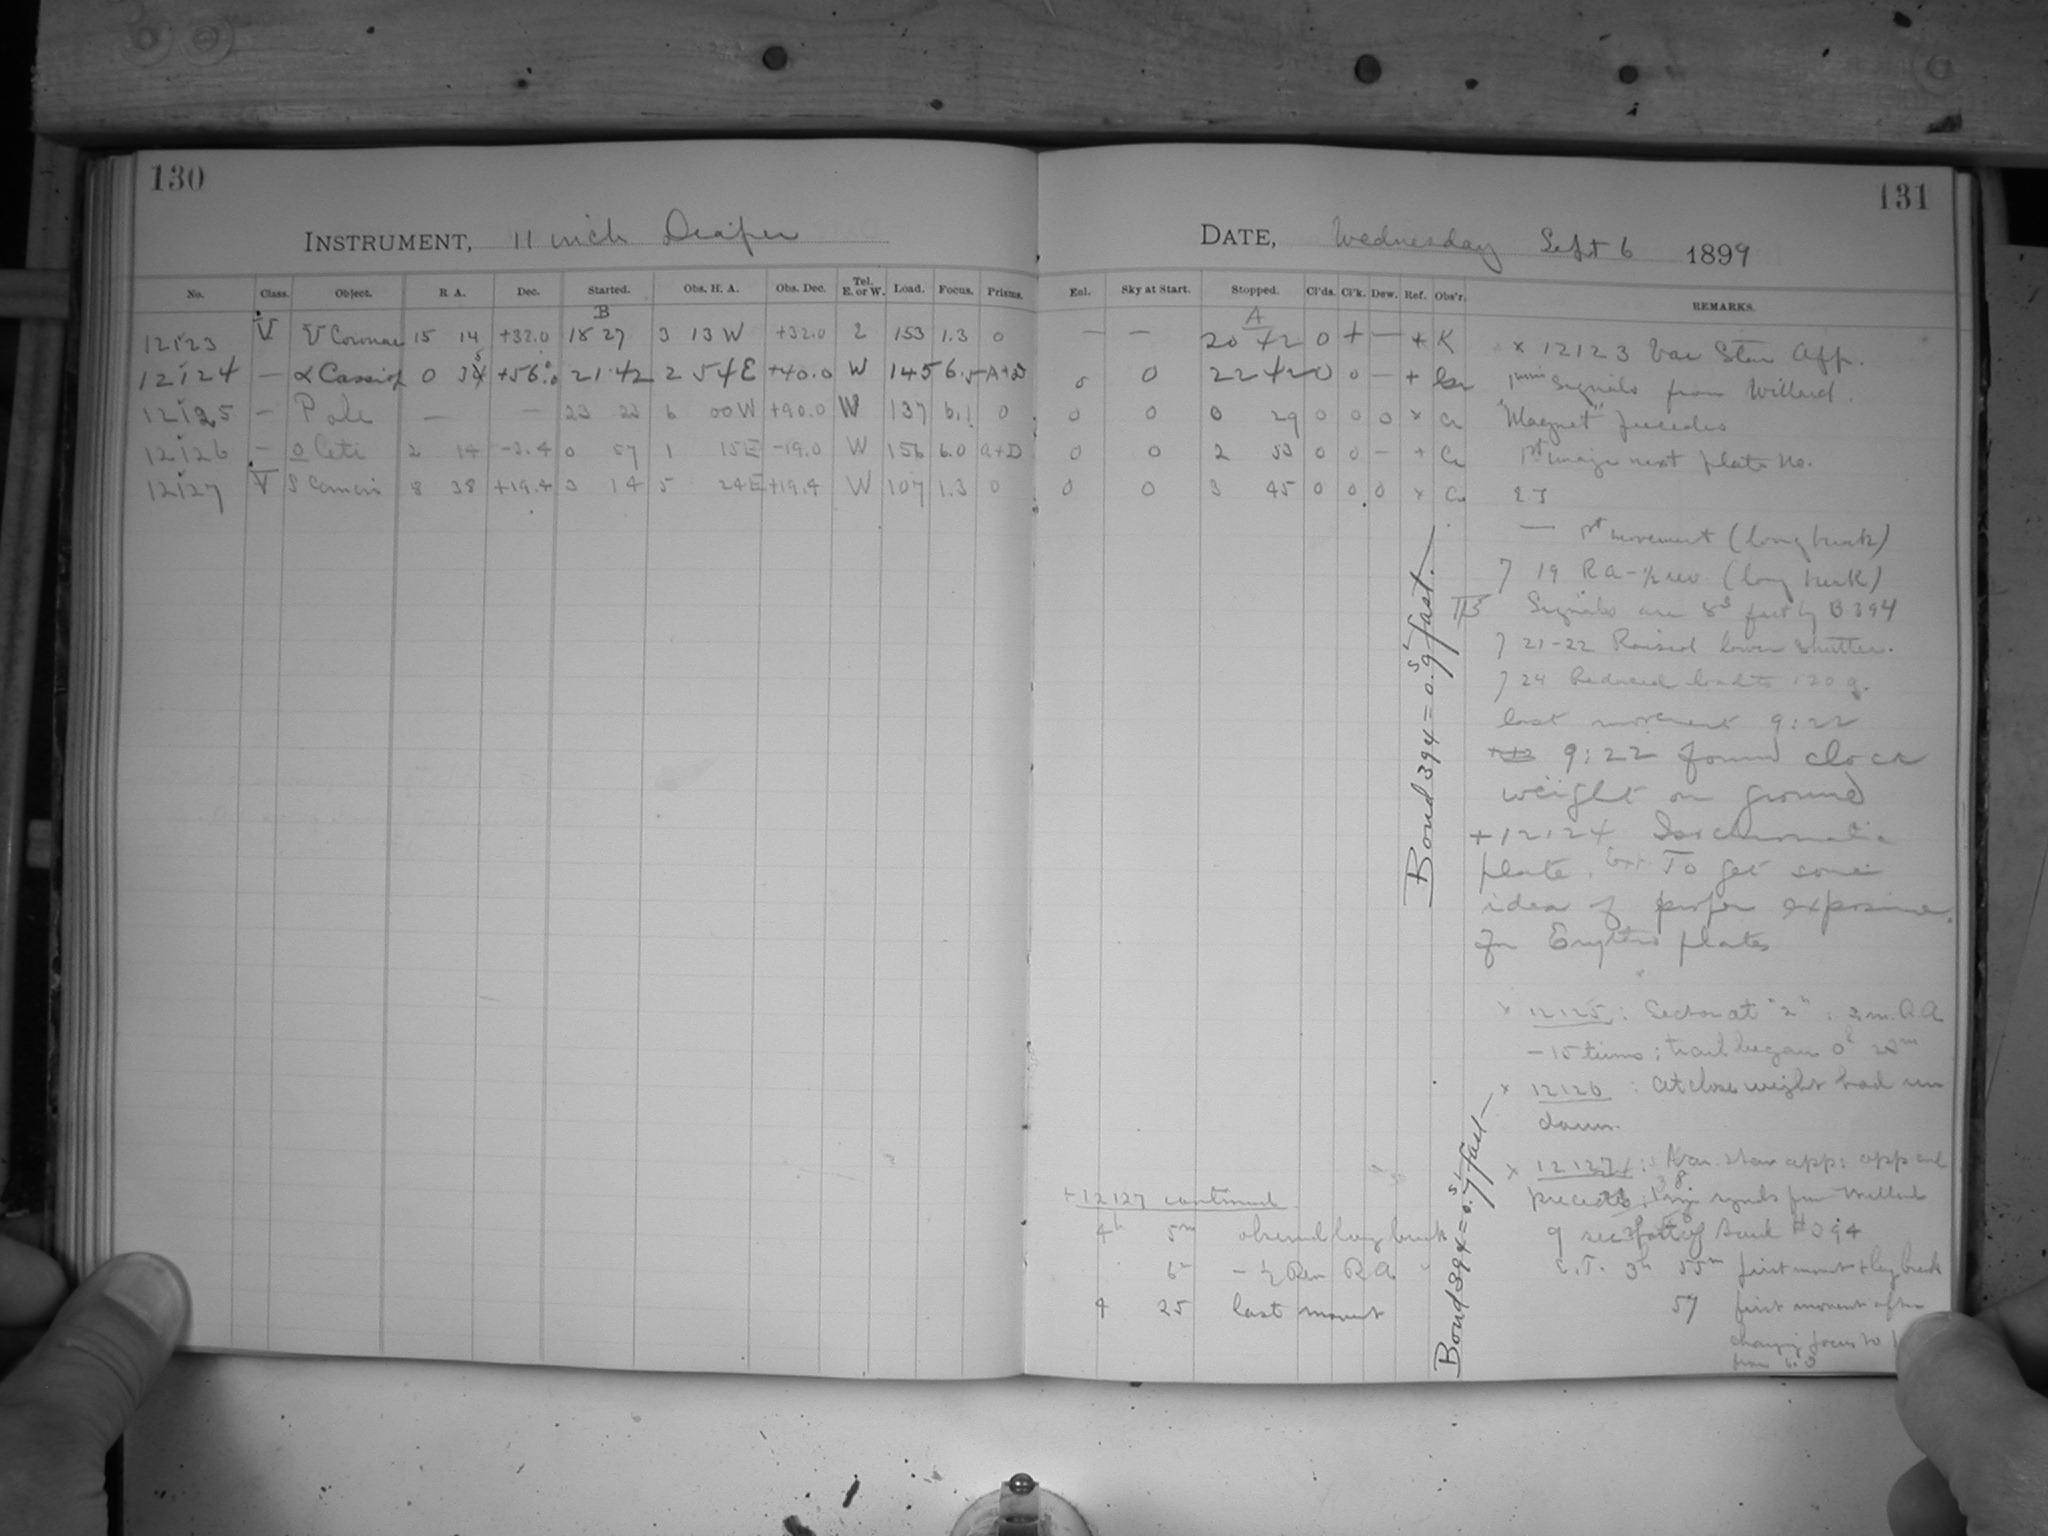 130
INSTRUMENT, 11 inch Draper
No. Class. Object. R. A. Dec. Started. Obs. H. A. Obs. Dec. Tel. E. or W. Load. Focus. Prisms.
B
12123 V U Coronae 15 14 +32.0 18 27 3 13 W +32.0 2 153 1.3 0
12124 — α Cassiop 0 35 +56.0 21 42 2 54 E +40.0 W 145 6.5 A+D
12125 — Pole — — 23 23 6 00 W +90.0 W 137 6.1 0
12126 — o Ceti 2 14 -3.4 0 57 1 15 E -19.0 W 156 6.0 a+D
12127 V S Cancri 8 38 +19.4 3 14 5 24 E +19.4 W 107 1.3 0
131
DATE, Wednesday Sept 6 1899
Eol. Sky at Start. Stopped. Cl'ds. Cl'k. Dew. Ref. Obs'r. REMARKS.
A
— — 20 42 0 + — + K
0 0 22 42 0 0 — +
0 0 0 29 0 0 0 ×
0 0 2 53 0 0 — +
0 0 3 45 0 0 0 ×
× 12123 Var Star App.
1 min signals from Willard.
"Magnet" precedes
1st image next plate No.
— 1st movement (long break)
7 19 RA - 1/2 rev. (long break)
Signals are 8s fast by B 394
7 21-22 Raised lower shutter.
7 24 Reduced load to 120 g.
last movement 9:22
9:22 found clock
weight on ground
+ 12124 Isochromatic
plate. Exp. To get some
idea of proper exposure
for Erythro plates
× 12125: Sector at "2":
-15 turns; trail began
× 12126: At close weight had run
down.
× 12127: Var. star app: app and
precedes: signals from Willard
9 sec fast of Bond #394
3h 55m first movmt + long break
57 first movment after
changing focus to
from 6.0
Bond 394 = 0.s9 fast.
Bond 394 = 0.s7 fast
+ 12127 continued
4h 5m observed long break
6m - 1/2 Rev R.A.
4 25 last movmt